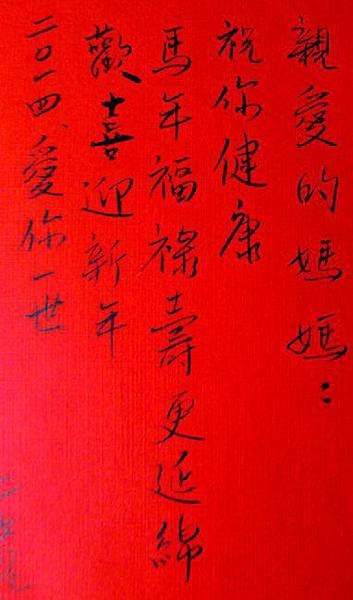 親愛的媽媽：
祝你健康
馬年福祿壽更延綿
歡喜迎新年
二〇一四愛你一世